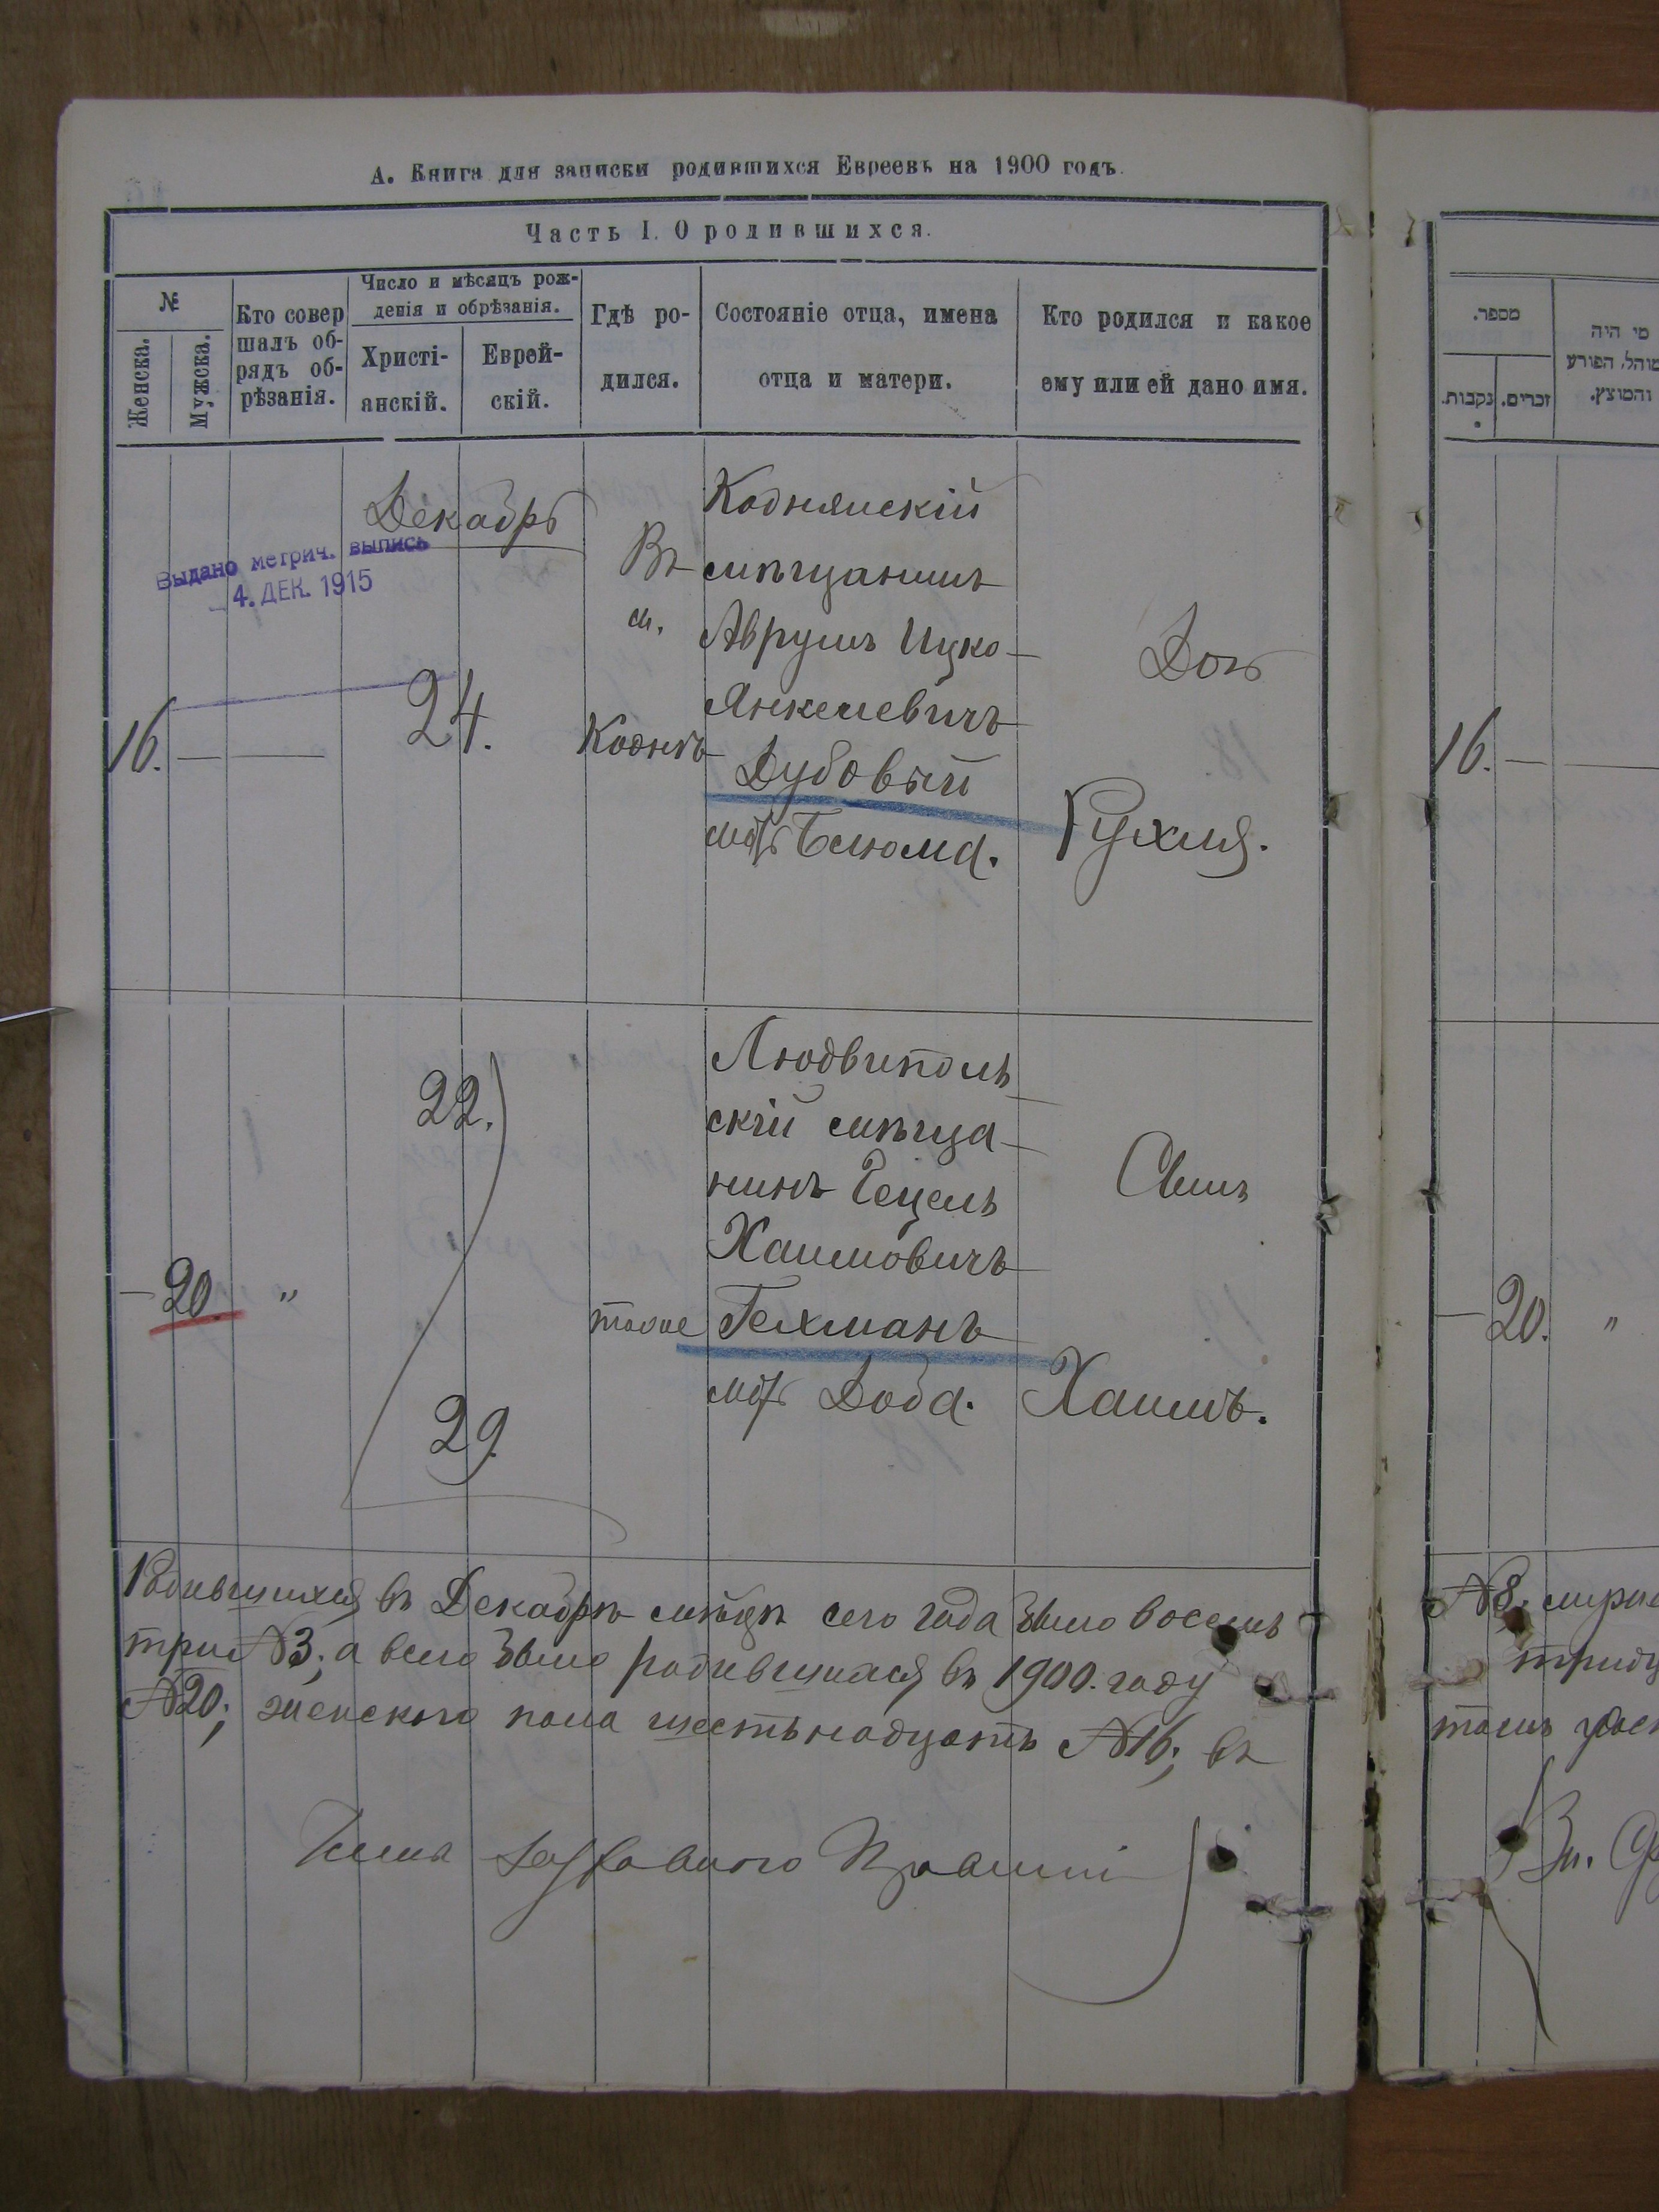 А. Книга для записки родившихся Евреевъ на 1900 годъ.
Часть I. О родившихся.
№
Женска.
Мужска.
Кто совер
шалъ об-
рядъ об-
рѣзанія.
Число и мѣсяцъ рож-
денія и обрѣзанія.
Христі-
анскій.
Еврей-
скій.
Гдѣ ро-
дился.
Состояніе отца, имена
отца и матери.
Кто родился и какое
ему или ей дано имя.
Декабрь
Выдано метрич. выпись
4. ДЕК. 1915
16. — —
24.
Въ
м.
Коднѣ
Коднянскій
мѣщанинъ
Аврумъ Ицко-
Янкелевичъ
Дубовый
Дочь
Рухля.
— 20. "
22.
29.
тоже
Людвиполь
скій мѣща-
нинъ Гецель
Хаимовичъ
Гехманъ
Доба.
Сынъ
Хаимъ.
Родившихся въ Декабрѣ сего года было восемь
три №3; а всего было родившихся въ 1900. году
№20; женскаго пола шестьнадцать №16; въ
מספר.
נקבות.
זכרים.
מי היה
מוהל, הפורע
והמוצץ.
16. —
— 20. "
№8.